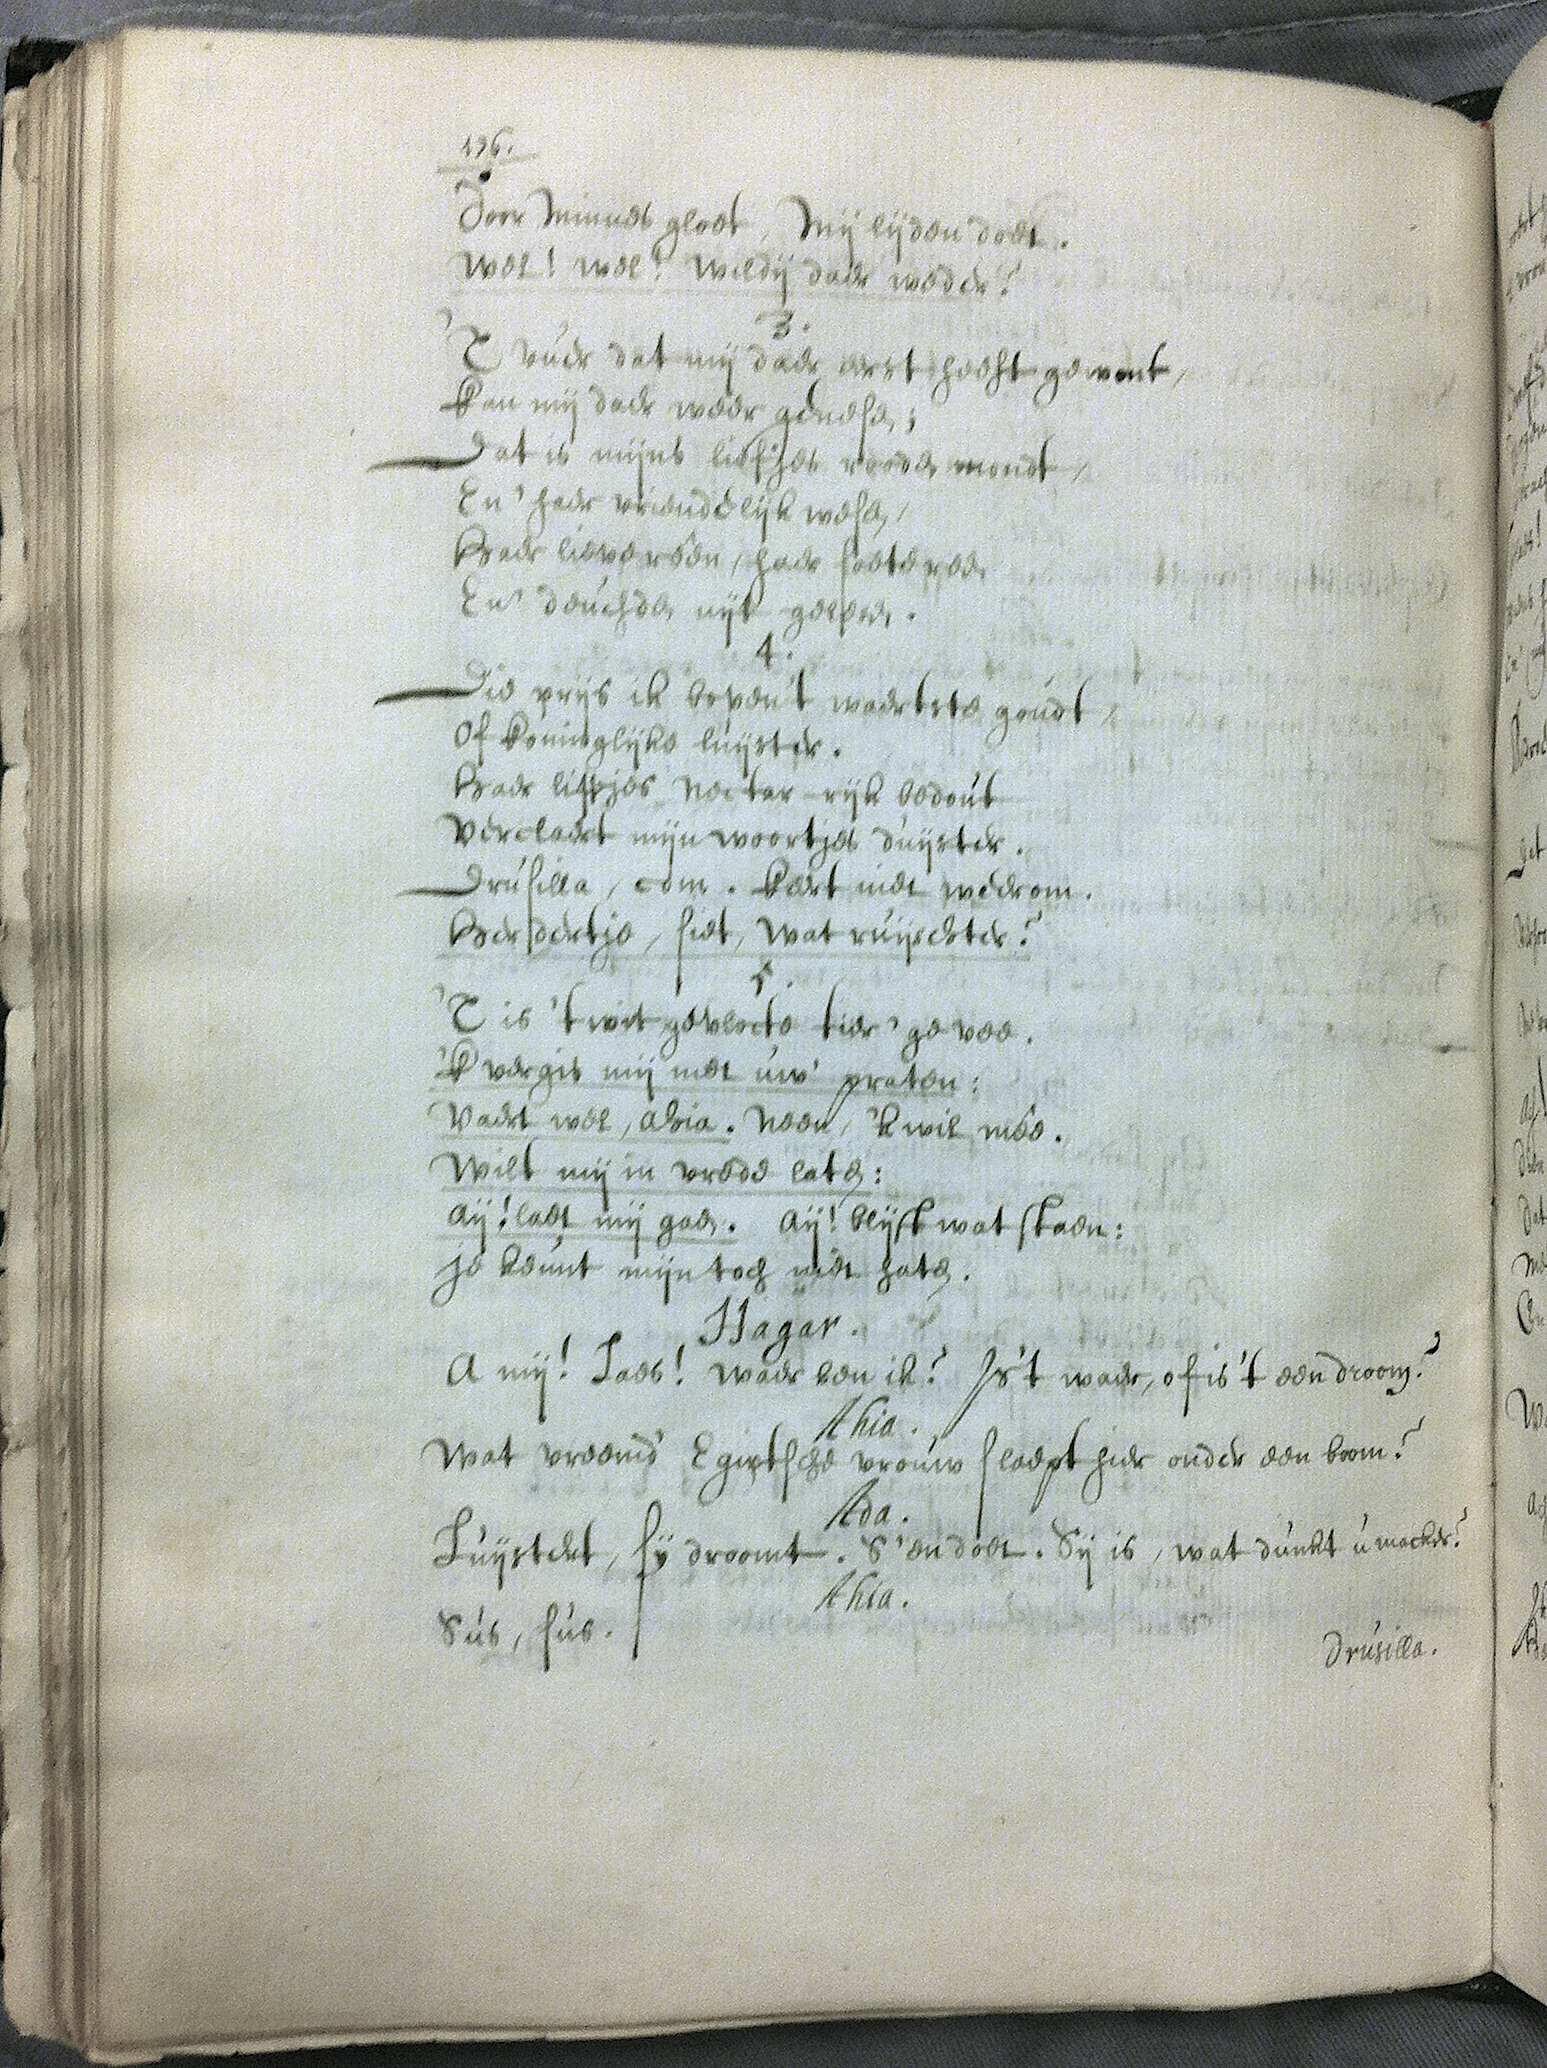 136.
Door Minnes gloet, Mij lijden doet.
Wel! wel! Wildij daer weder?
3.
'T vuer dat mij daer eerst heeft gewont,
Kan mij daer weer genese,;
Dat is mijns liefjes roode mondt,
En' haer vriendelijk wese,
Haer lieve reden, haer soete rede
En' deuchde nijt
4.
Die prijs ik boven 't waertste goudt,
Of koninglijke luijster.
Haer lipjes Nectar-rijk bedout
Verclaert mijn woortjes duijster.
Drusilla, com. Keert niet wederom.
Herdertje, siet, wat ruijschter?
5.
'T is 't wit gevlockte tier' ge vee.
'K vergis mij met uw' praten:
Vaert wel, Ahia. Neen, 'k wil mée.
Wilt mij in vrede late:
Aij! laet mij gae. Aij! blijft wat staen:
Je keunt mijn toch niet hate.
Hagar.
A mij! Laes! Waer ben ik? Is't waer, of is 't een droom?
Ahia.
Wat vreemd' Egiptsche vrouw slaept hier onder een boom?
Ada.
Luijstert, sij droomt. S'en doet. Sij is, wat dunkt u macker?
Ahia.
Sus, sus.
Drusilla.